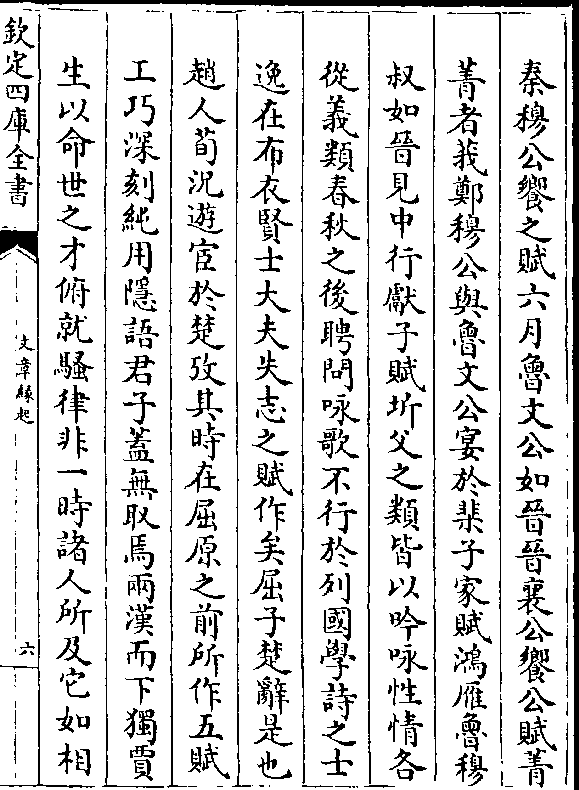 秦穆公饗之賦六月魯文公如晉晉襄公饗公賦菁
菁者莪鄭穆公與魯文公宴於棐子家賦鴻雁魯穆
叔如晉見中行獻子賦圻父之類皆以吟咏性情各
從義類春秋之後聘問咏歌不行於列國學詩之士
逸在布衣賢士大夫失志之賦作矣屈子楚辭是也
趙人荀況遊宦於楚攷其時在屈原之前所作五賦
工巧深刻純用隱語君子蓋無取焉兩漢而下獨賈
生以命世之才俯就騷律非一時諸人所及它如相
欽定四庫全書
文章緣起
六